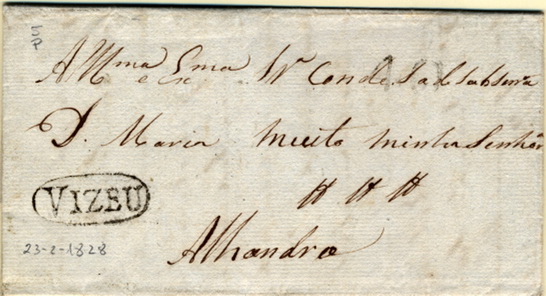 A Illma e Exma Sr Condessa de Subserra
D. Maria Muito Minha Senhora
VIZEU
23-2-1828
Alhandra